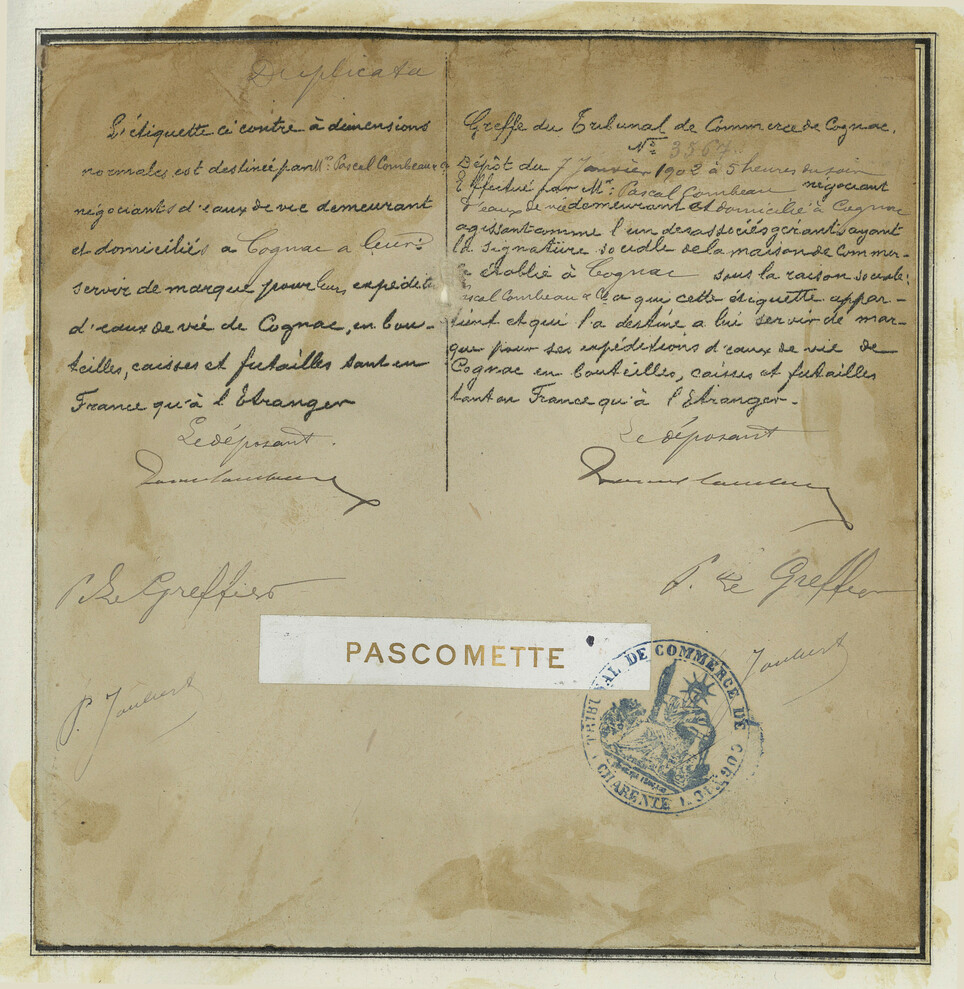 Duplicata
L'étiquette ci contre à dimensions
normales est destinée par Mrs Pascal Combeau & Co
négociants d'eaux de vie demeurant
et domiciliés a Cognac a leur
servir de marque pour leurs expéditions
d'eaux de vie de Cognac, en bou-
teilles, caisses et futailles tant en
France qu'à l'Etranger
Le déposant.
P. Le Greffier
P. Joubert
Greffe du Tribunal de Commerce de Cognac.
No 3564
Dépôt du 7 Janvier 1902 à 5 heures du soir
Effectué par Mr. Pascal Combeau négociant
d'eaux de vie demeurant et domicilié à Cognac
agissant comme l'un des associés gérants ayant
la signature sociale de la maison de Commer-
ce établie à Cognac sous la raison sociale:
Pascal Combeau & Co a qui cette étiquette appar-
tient et qui l'a destiné a lui servir de mar-
que pour ses expéditions d'eaux de vie de
Cognac en bouteilles, caisses et futailles
tant en France qu'à l'Etranger.
Le déposant
P. Le Greffier
Joubert
PASCOMETTE
TRIBUNAL DE COMMERCE DE COGNAC
CHARENTE